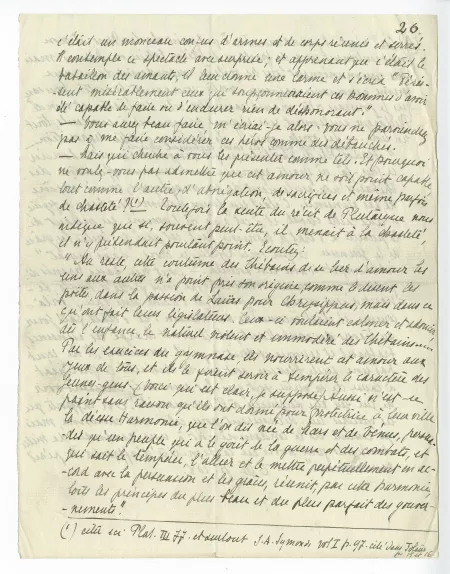 26.
c'était un monceau confus d'armes et de corps réunis et serrés.
Il contempla ce spectacle avec surprise; et apprenant que c'était le
bataillon des amants, il leur donna une larme et s'écria "Péris-
sent misérablement ceux qui soupçonneraient ces hommes d'avoir
été capable de faire ou d'endurer rien de déshonorant."
— Vous aurez beau faire m'écriai-je alors vous ne parviendrez
pas à me faire considérer ces héros comme des débauchés.
— Mais qui cherche à vous les présenter comme tels. Et pourquoi
ne voulez-vous pas admettre que cet amour ne soit point capable
tout comme l'autre, d'abnégation, de sacrifices et même parfois
de chasteté (1) Toutefois, la suite du récit de Plutarque nous
indique que si, souvent peut-être, il menait à la chasteté,
et n'y prétendait pourtant point. Ecoutez:
"Au reste cette coutume des Thébains de se lier d'amour les
uns aux autres n'a point pris son origine, comme le disent les
poètes, dans la passion de Laïus pour Chrysippus, mais dans ce
qu'ont fait leurs législateurs. Ceux-ci voulaient calmer et adoucir
dès l'enfance, le naturel violent et immodéré des Thébains....
Par les exercices du gymnase ils nourrirent cet amour aux
yeux de tous, et ils le firent servir à tempérer le caractère des
jeunes gens. (voici qui est clair, je suppose) Aussi n'est-ce
point sans raison qu'ils ont donné pour protectrice à leur ville
la déesse Harmonie, que l'on dit née de Mars et de Vénus, persua-
dés qu'un peuple qui a le goût de la guerre et des combats, et
qui sait le tempérer, l'allier et le mettre perpétuellement en ac-
cord avec la persuasion et les grâces, réunit, par cette harmonie,
tous les principes du plus beau et du plus parfait des gouver-
nements".
(1) citer ici Plat. III 77. et surtout J.A. Symonds vol I p. 97. cité dans